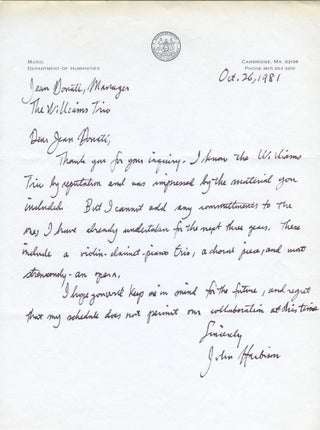 MUSIC
DEPARTMENT OF HUMANITIES
CAMBRIDGE, MA. 02139
PHONE (617) 253-3210
Oct. 26, 1981
Jean Donati, Manager
The Williams Trio
Dear Jean Donati,
Thank you for your inquiry. I know the Williams
Trio by reputation and was impressed by the material you
included. But I cannot add any commitments to the
ones I have already undertaken for the next three years. These
include a violin-clarinet-piano trio, a choral piece, and most
strenuously - an opera.
I hope you will keep me in mind for the future, and regret
that my schedule does not permit our collaboration at this time
Sincerely
John Harbison